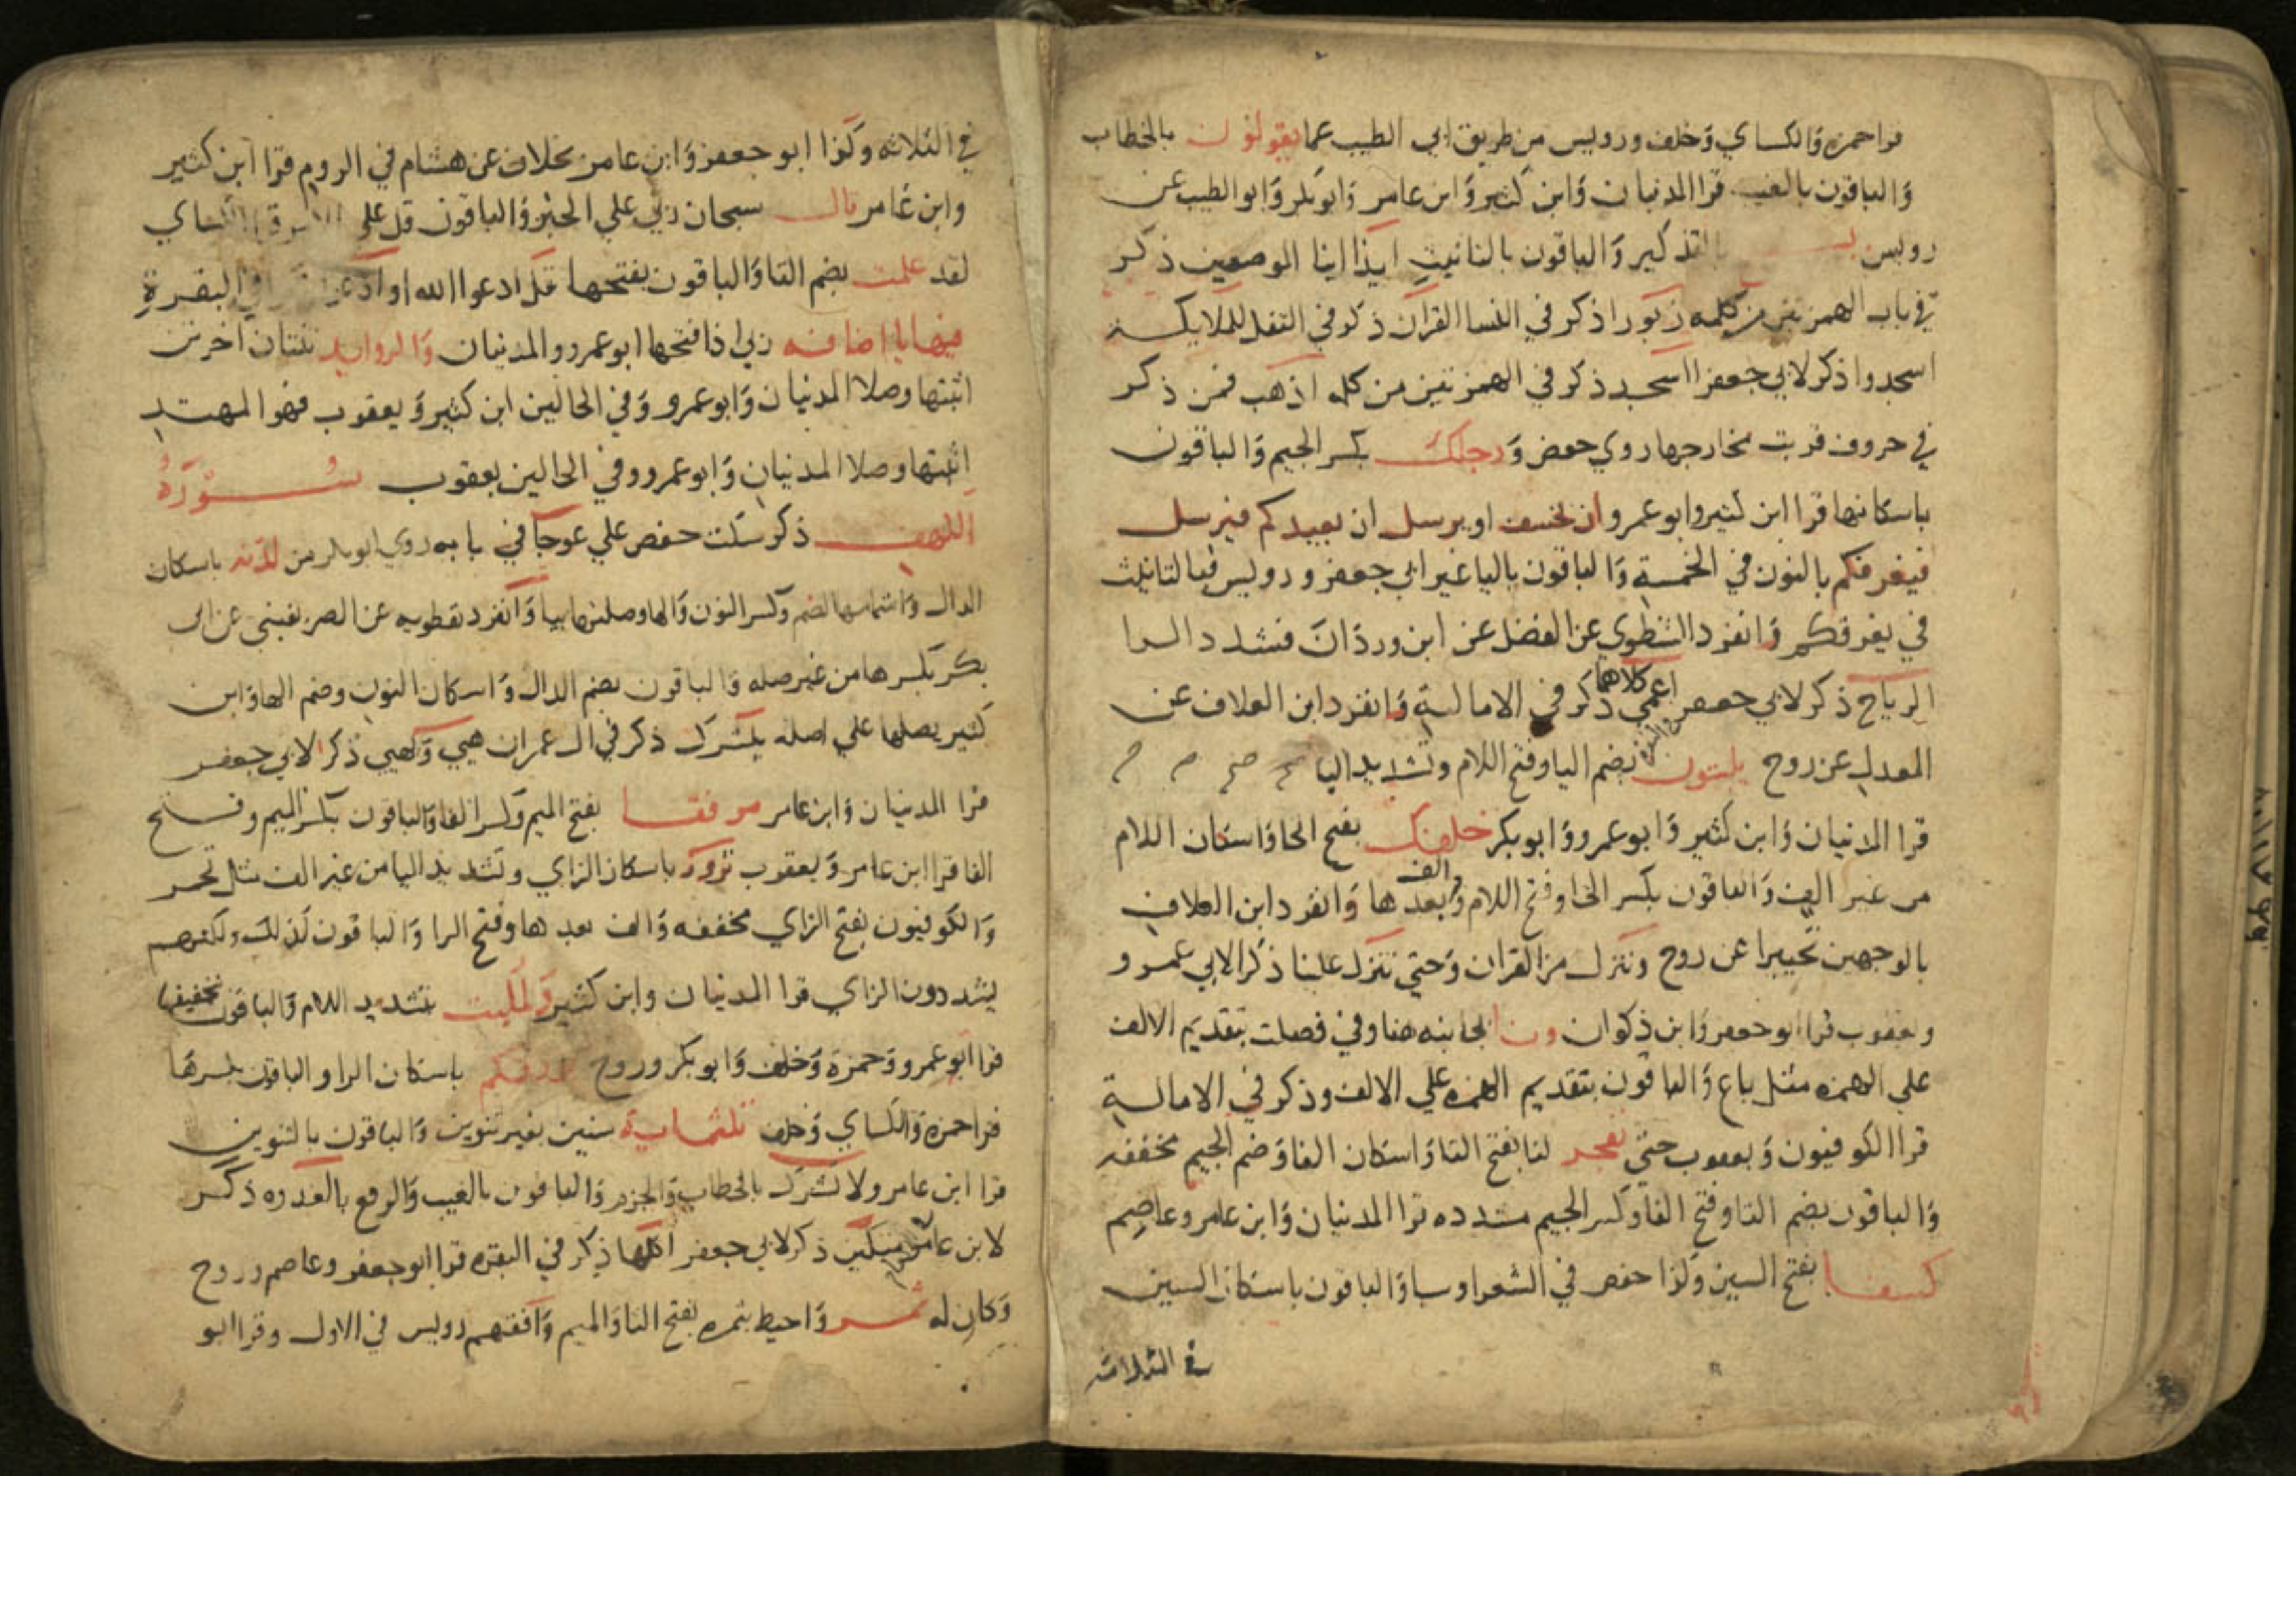 قرا حمزه والكساي وخلف ورويس من طريق ابي الطيب عما يقولون بالخطاب
والباقون بالغيب قرا المدنيان وابن كثير وابن عامر وابو بكر وابو الطيب عن
رويس بالتذكير والباقون بالتانيث ايذا اينا الموضعين ذكر
في باب الهمزتين من كلمه زبورا ذكر في النسا القران ذكر في النقل للملايكة
اسجدوا ذكر لابي جعفر ااسجد ذكر في الهمزتين من كلمه اذهب فمن ذكر
في حروف قربت مخارجها روي حفص ورجلك بكسر الجيم والباقون
باسكانها قرا ابن كثير وابو عمرو ان نخسف او يرسل ان يعيدكم فيرسل
فيغرقكم بالنون في الخمسة والباقون بالياغير ابي جعفر ورويس فبالتانيث
في يغرقكم وانفرد الشطوي عن الفضل عن ابن وردان فشدد الرا
الرياح ذكر لابي جعفر اعمي كلاهما ذكر في الامالة وانفرد ابن العلاف عن
المعدل عن روح يلبثون بضم اليا وفتح اللام وتشديد البا
قرا المدنيان وابن كثير وابو عمرو وابو بكر خلفك بفتح الخا واسكان اللام
من غير الف والباقون بكسر الخا وفتح اللام والف بعدها وانفرد ابن العلاف
بالوجهين تخييرا عن روح وننزل من القران وحتي تنزل علينا ذكر الابي عمرو
ويعقوب قرا ابو جعفر وابن ذكوان ونا بجانبه هنا وفي فصلت بتقديم الالف
علي الهمزه مثل باع والباقون بتقديم الهمزه علي الالف وذكر في الامالة
قرا الكوفيون ويعقوب حتي تفجر لنا بفتح التا واسكان الفا وضم الجيم مخففه
والباقون بضم التا وفتح الفا وكسر الجيم مشدده قرا المدنيان وابن عامر وعاصم
كسفا بفتح السين وكذا حفص في الشعرا وسبا والباقون باسكان السين
في الثلاثه
في الثلاثه وكذا ابو جعفر وابن عامر بخلاف عن هشام في الروم قرا ابن كثير
وابن عامر قال سبحان ربي علي الخبر والباقون قل علي الكساي
لقد علمت بضم التا والباقون بفتحها قل ادعوا الله او البقرة
فيها يا اضافه ربي اذا فتحها ابو عمرو والمدنيان والزوايد ثنتان اخرتن
اثبتها وصلا المدنيان وابو عمرو وفي الحالين ابن كثير ويعقوب فهو المهتد
اثبتها وصلا المدنيان وابو عمرو وفي الحالين يعقوب سورة
الكهف ذكر سكت حفص علي عوجا في بابه روي ابو بكر من لدنه باسكان
الدال واشمامها الضم وكسر النون والها وصلتها بيا وانفرد نفطويه عن الصريفيني عن ابي
بكر بكسرها من غير صله والباقون بضم الدال واسكان النون وضم الها وابن
كثير يصلها علي اصله يبشرك ذكر في ال عمران هيي وكهيي ذكرا لابي جعفر
قرا المدنيان وابن عامر مرفقا بفتح الميم وكسر الفا والباقون بكسر الميم وفتح
الفا قرا ابن عامر ويعقوب تزور باسكان الزاي وتشديد اليا من غير الف مثل تحمر
والكوفيون بفتح الزاي مخففه والف بعدها وفتح الرا والباقون كذلك ولكنهم
يشددون الزاي قرا المدنيان وابن كثير ولمليت بتشديد اللام والباقون بتخفيفها
قرا ابو عمرو وحمزة وخلف وابو بكر وروح بورقكم باسكان الرا والباقون بكسرها
قرا حمزة والكساي وخلف ثلثماية سنين بغير تنوين والباقون بالتنوين
قرا ابن عامر ولا تشرك بالخطاب والجزم والباقون بالغيب والرفع بالغدوه ذكر
لابن عامر متكين ذكر لابي جعفر اكلها ذكر في البقره قرا ابو جعفر وعاصم وروح
وكان له ثمر واحيط بثمره بفتح الثا والميم وافقهم رويس في الاول وقرا ابو